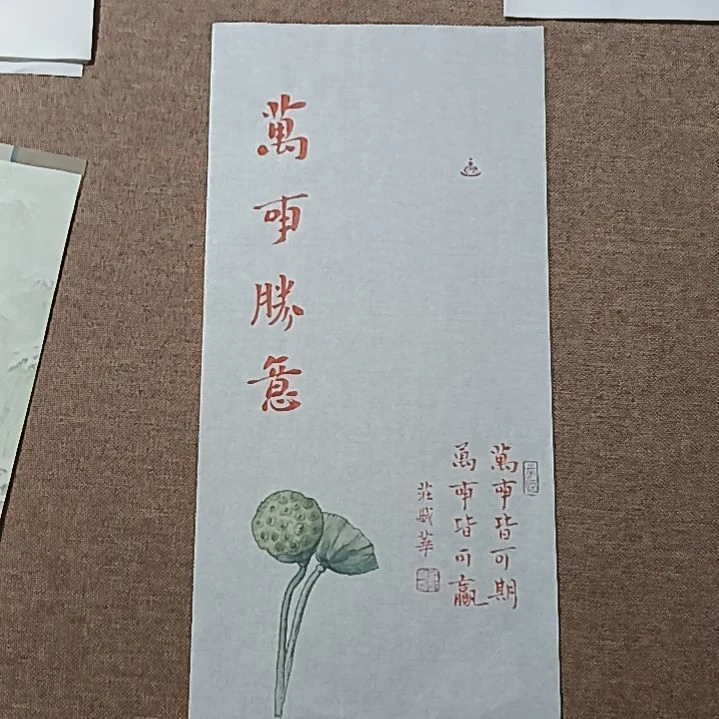 萬事勝意
萬事皆可期
萬事皆可贏